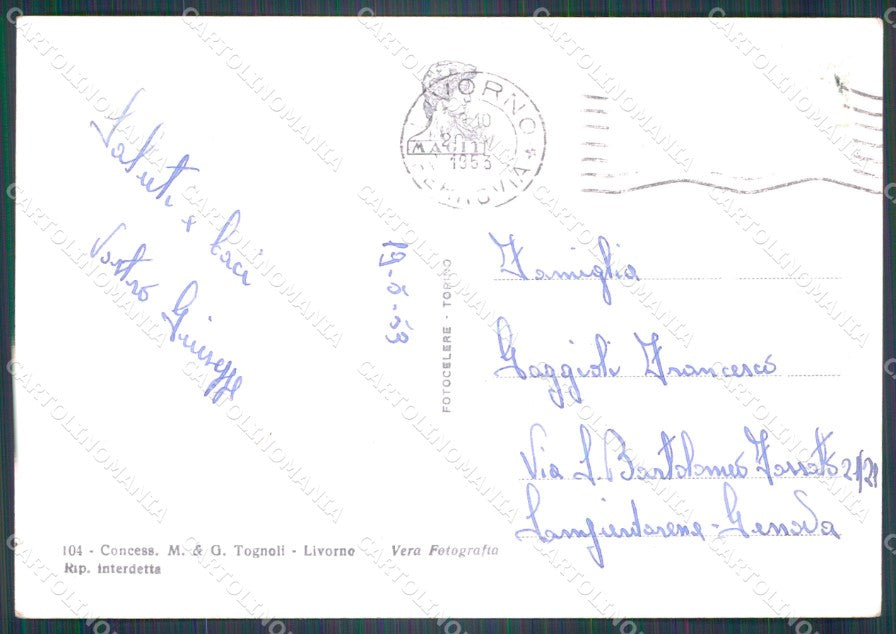 Saluti e baci
Vostro Giuseppe
19-5-53
LIVORNO
FERROVIA
-10
20
1953
FOTOCELERE - TORINO
Famiglia
Gaggioli Francesco
Via S. Bartolomeo Fossato 21/21
Sampierdarena - Genova
104 - Concess. M. & G. Tognoli - Livorno
Vera Fotografia
Rip. interdetta
CARTOLINOMANIA